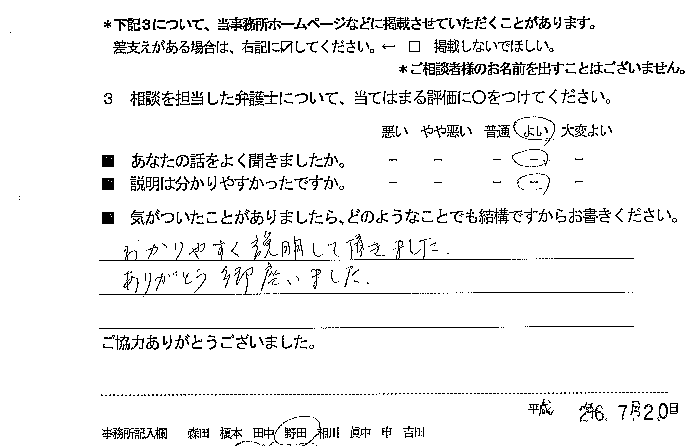 ＊下記3について、当事務所ホームページなどに掲載させていただくことがあります。
差支えがある場合は、右記に☑してください。← □ 掲載しないでほしい。
＊ご相談者様のお名前を出すことはございません。
3 相談を担当した弁護士について、当てはまる評価に○をつけてください。
悪い やや悪い 普通 よい 大変よい
■ あなたの話をよく聞きましたか。 － － － － －
■ 説明は分かりやすかったですか。 － － － － －
■ 気がついたことがありましたら、どのようなことでも結構ですからお書きください。
わかりやすく説明して頂きました.
ありがとう御座いました.
ご協力ありがとうございました。
平成 26年7月20日
事務所記入欄 森田 榎本 田中 野田 相川 眞中 申 吉田